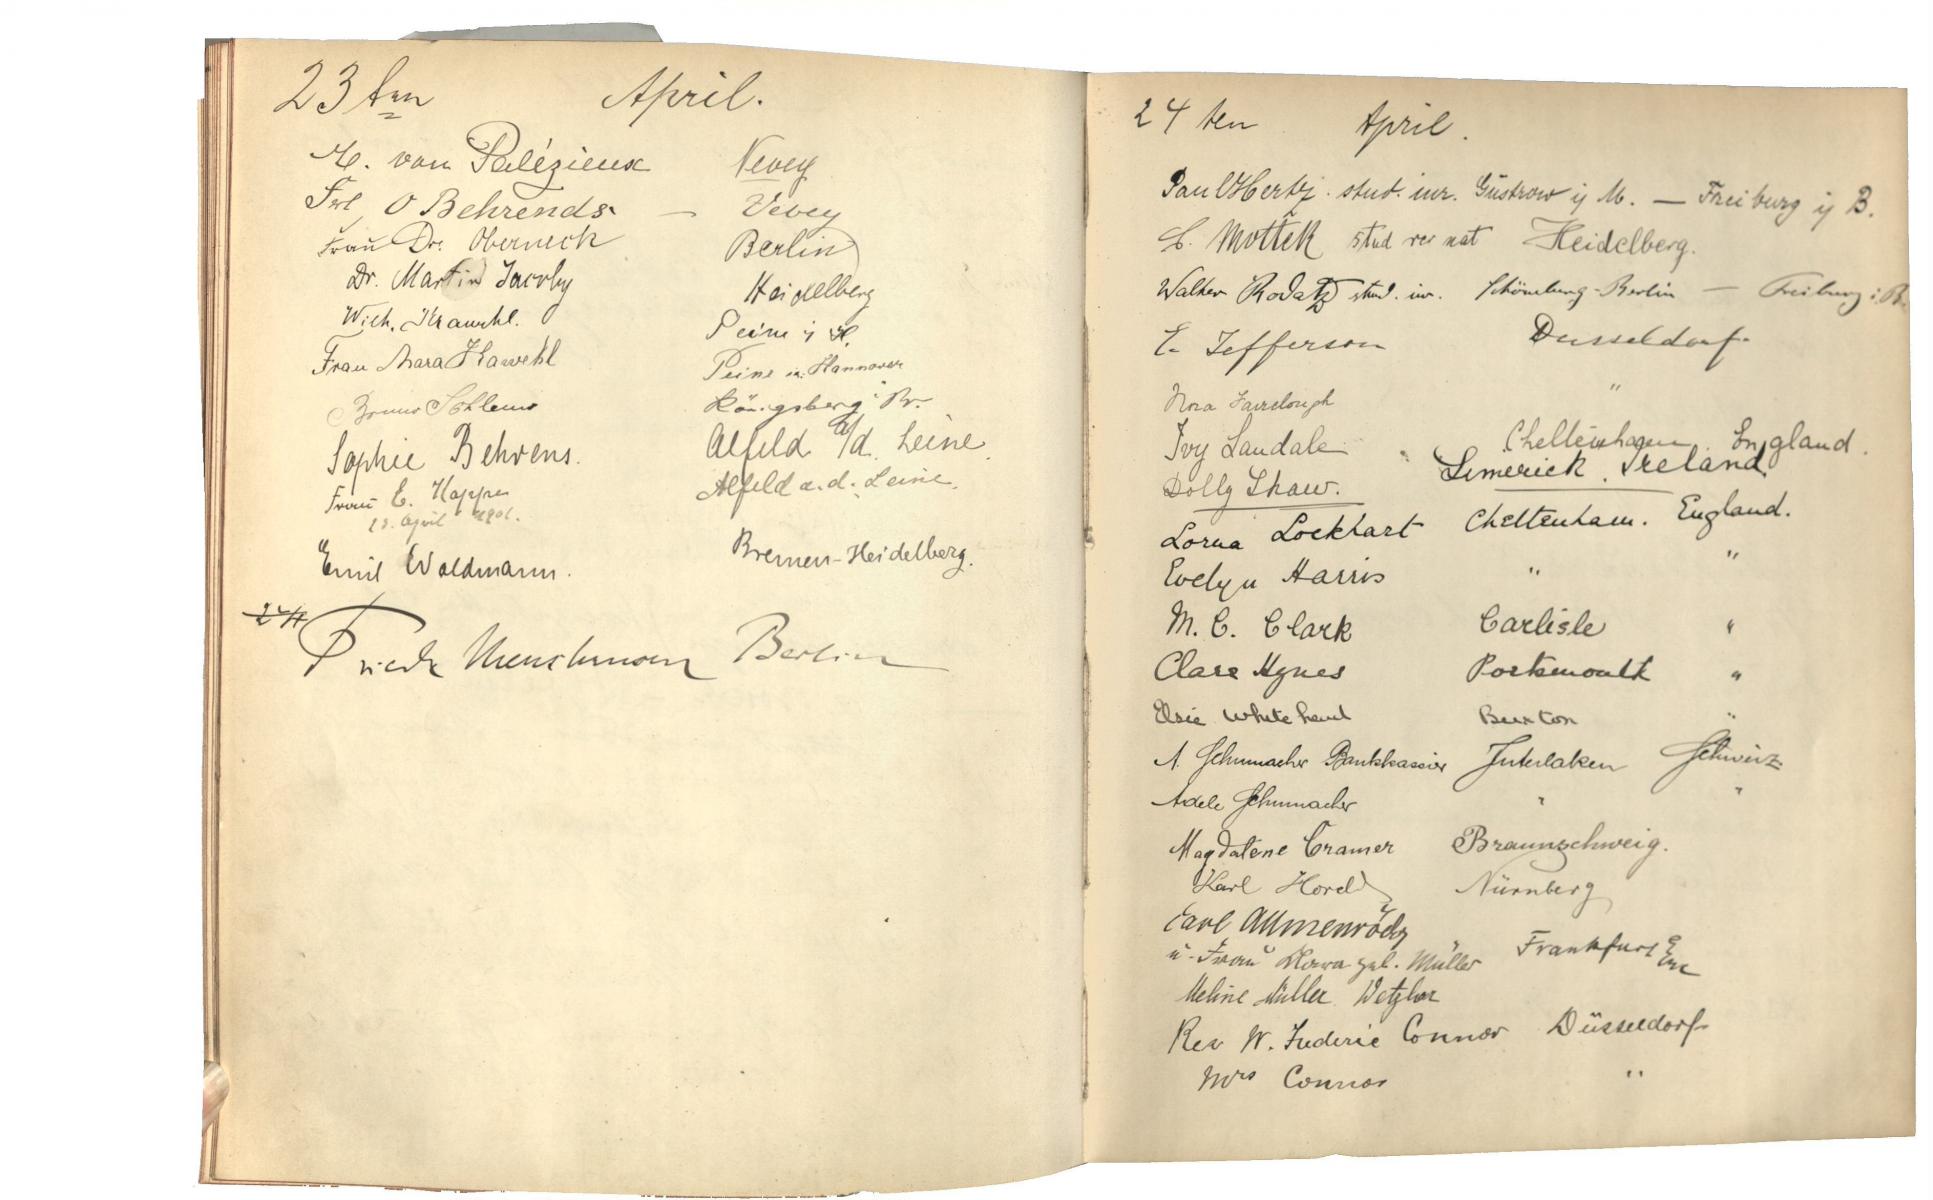 23ten April.
M. von Palézieux Vevey
Frl. O Behrends — Vevey
Frau Dr. Oberneck Berlin
Dr. Martin Jacoby Heidelberg
Wilh. Kawehl. Peine i/H.
Frau Mara Kawehl Peine in Hannover
Bruno Königsberg i. Pr.
Sophie Behrens. Alfeld a/d. Leine.
Frau E. Hoppe Alfeld a. d. Leine.
23. April 1901.
Emil Waldmann. Bremen-Heidelberg.
24
Berlin
24 ten April.
Paul Hertz. stud. iur. Güstrow i/ M. — Freiburg i/ B.
Mottek stud rer nat Heidelberg.
Walter Rodatz stud. iur. Schöneberg-Berlin — Freiburg i. B.
E. Jefferson Dusseldorf.
Nora Fairclough "
Ivy Landale England.
Dolly Shaw. Limerick. Ireland.
Lorna Lockhart Cheltenham. England.
Evelyn Harris " "
M. C. Clark Carlisle "
Clare Hynes Portsmouth "
Elsie Whitehead Buxton "
A. Schumacher Bankkassier Interlaken Schweiz
Adele Schumacher " "
Magdalene Cramer Braunschweig.
Karl Nürnberg
Carl Allmenröder
u. Frau geb. Müller Frankfurt
Meline Müller Wetzlar
Rev W. Frederic Connor Düsseldorf
Mrs Connor "